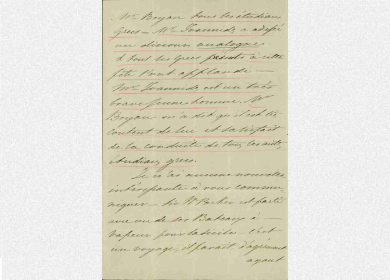 Mr Boyan tous les étudians
grecs — Mr Ivannides a adressé
un discours analogue
à tout les Grecs présents à cette
fête tout applaudi —
Mr Ivannides est un très
brave jeune homme. Mr
Boyan m'a dit qu'il est très
content de lui et satisfait
de la conduite de tous les autres
étudians grecs.
Je n'ai aucune nouvelle
intéressante à vous commu
niquer — Sir W Parker est parti
sur un de ses Bateaux à
vapeur pour la Sicile. c'est
un voyage, il parait d'agrément
ayant